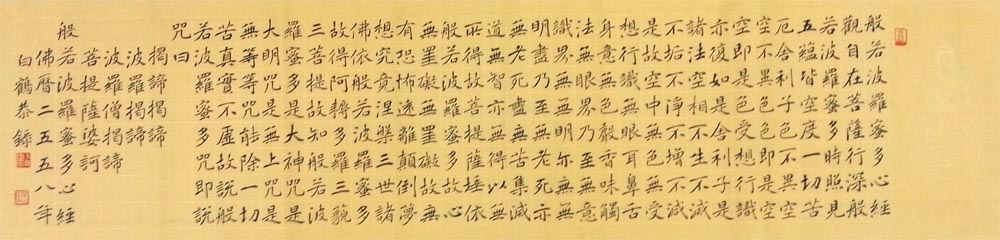 般若波羅蜜多心經
觀自在菩薩行深般
若波羅蜜多時照見
五蘊皆空度一切苦
厄舍利子色不異空
空不異色色即是空
空即是色受想行識
亦復如是舍利子是
諸法空相不生不滅
不垢不淨不增不減
是故空中無色無受
想行識無眼耳鼻舌
身意無色聲香味觸
法無眼界乃至無意
識界無無明亦無無
明盡乃至無老死亦
無老死盡無苦集滅
道無智亦無得以無
所得故菩提薩埵依
般若波羅蜜多故心
無罣礙無罣礙故無
有恐怖遠離顛倒夢
想究竟涅槃三世諸
佛依般若波羅蜜多
故得阿耨多羅三藐
三菩提故知般若波
羅蜜多是大神咒是
大明咒是無上咒是
無等等咒能除一切
苦真實不虛故說般
若波羅蜜多咒即說
咒曰
揭諦揭諦
波羅揭諦
波羅僧揭諦
菩提薩婆訶
般若波羅蜜多心經
佛曆二五五八年
白鶴恭錄